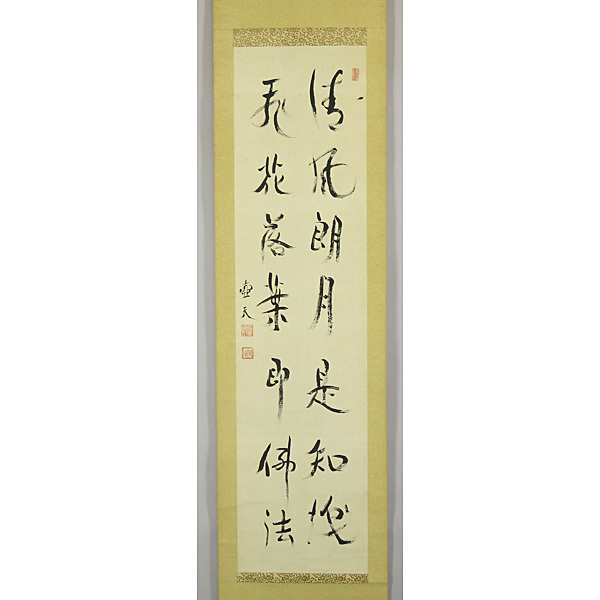 清風朗月是知
飛花落葉即佛法
天